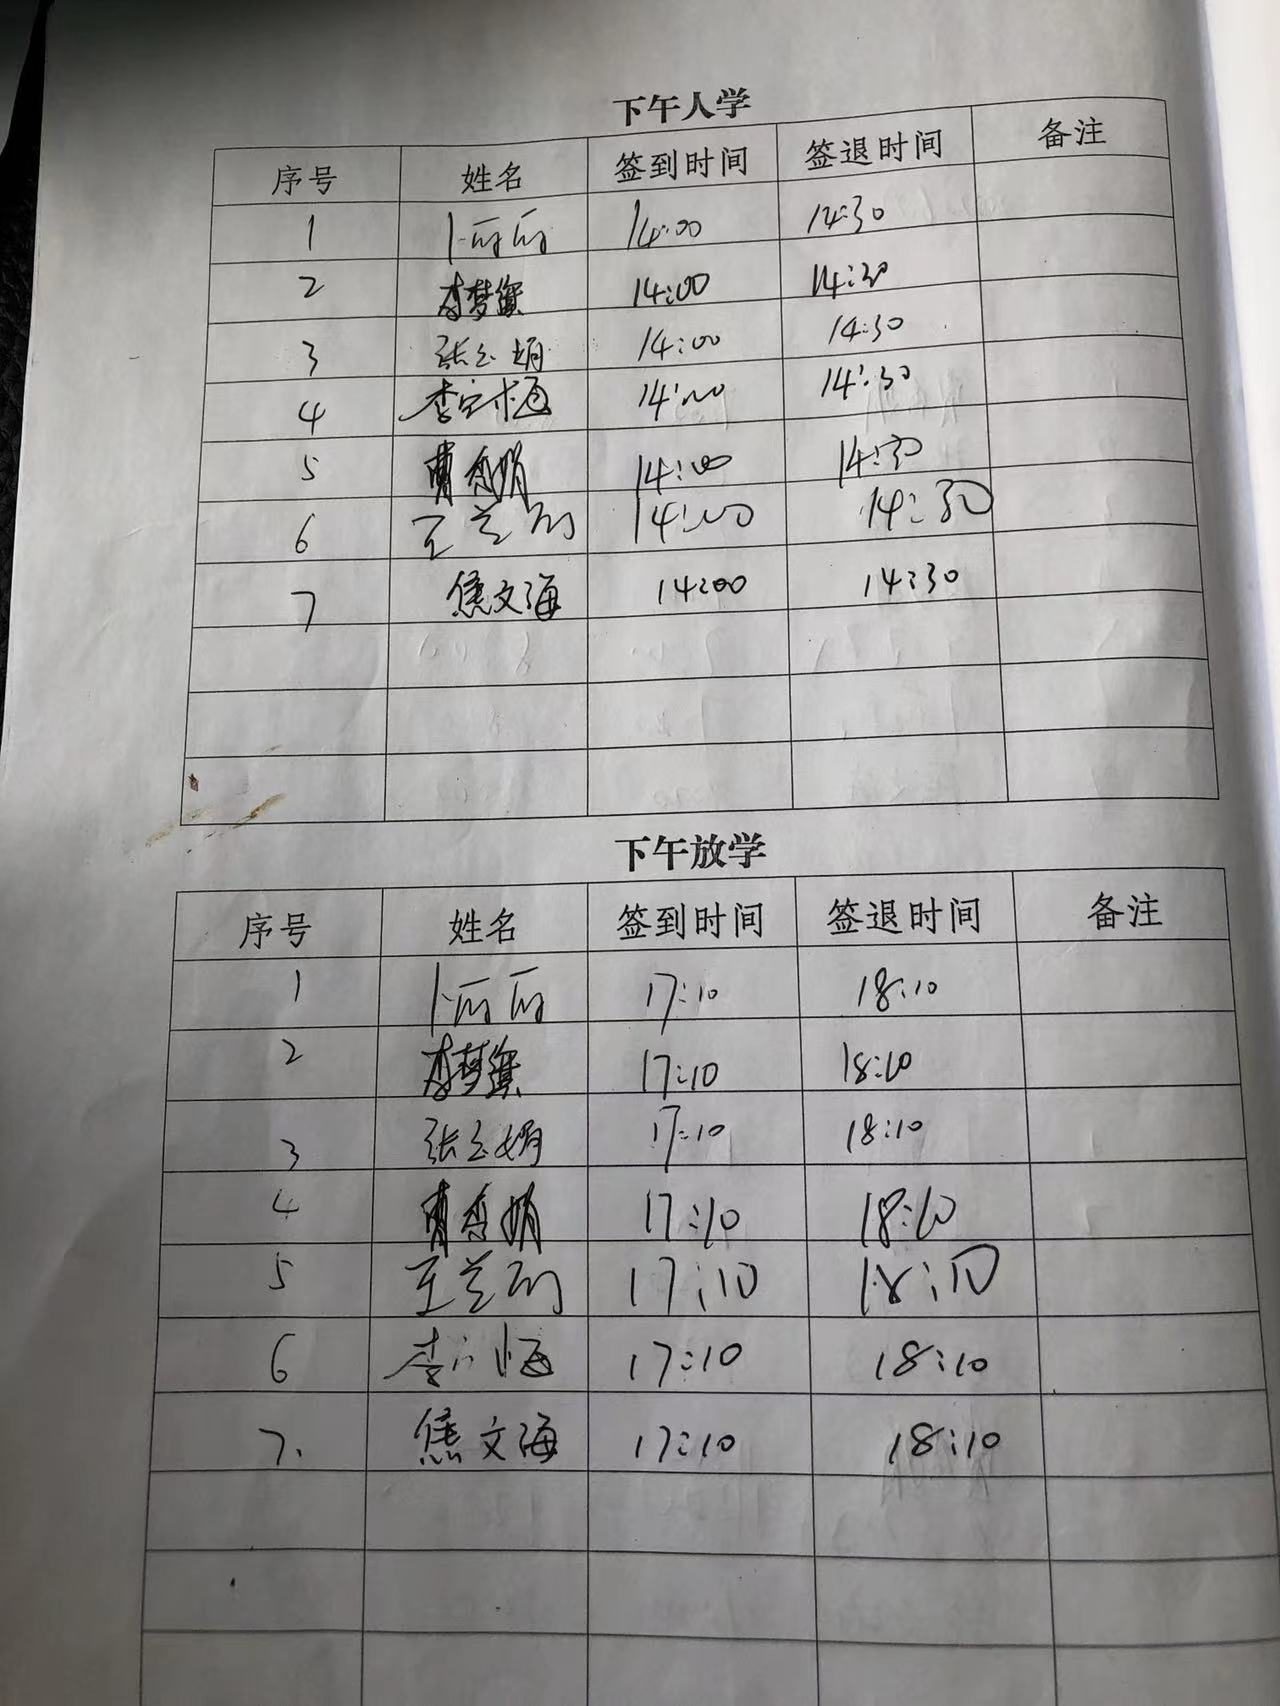 下午人学
序号 姓名 签到时间 签退时间 备注
1 卜丽丽 14:00 14:30
2 李梦 14:00 14:30
3 张玉娟 14:00 14:30
4 李 梅 14:00 14:30
5 曹 娟 14:00 14:30
6 王兰 14:00 14:30
7 焦文海 14:00 14:30
下午放学
序号 姓名 签到时间 签退时间 备注
1 卜丽丽 17:10 18:10
2 李梦 17:10 18:10
3 张玉娟 17:10 18:10
4 曹 娟 17:10 18:10
5 王兰 17:10 18:10
6 李 梅 17:10 18:10
7. 焦文海 17:10 18:10